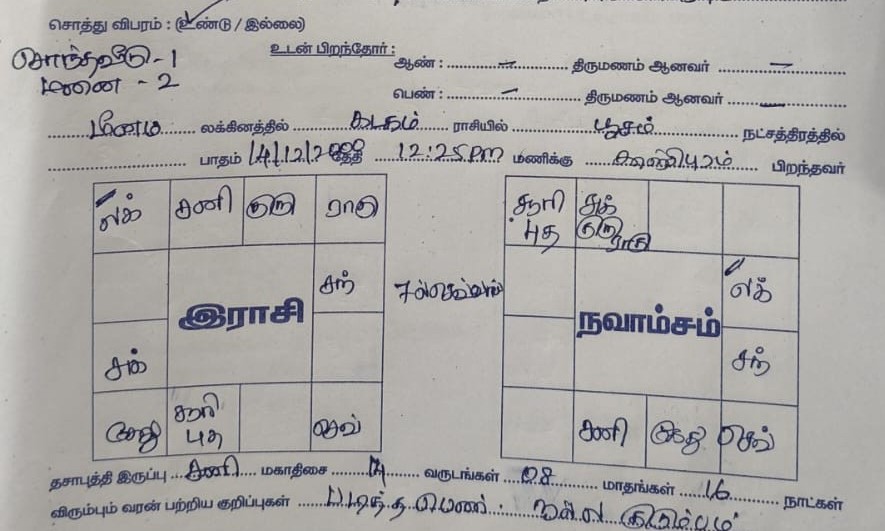 சொத்து விபரம் : (உண்டு / இல்லை)
சொந்தவீடு - 1
மனை - 2
உடன் பிறந்தோர் :
ஆண் : ........ – ........ திருமணம் ஆனவர் ........ – ........
பெண் : ........ – ........ திருமணம் ஆனவர் ........ – ........
மீனம் லக்கினத்தில் கடகம் ராசியில் பூசம் நட்சத்திரத்தில்
பாதம் 14/12/2000 தேதி 12:25pm மணிக்கு பிறந்தவர்
லக் சனி குரு ராகு
சந்
இராசி
சுக்
கேது சூரி புத செவ்
7ல் செவ்வாய்
சூரி புத சுக் குரு ராகு
லக்
நவாம்சம்
சந்
சனி கேது செவ்
தசாபுத்தி இருப்பு சனி மகாதிசை வருடங்கள் 08 மாதங்கள் 16 நாட்கள்
விரும்பும் வரன் பற்றிய குறிப்புகள் படித்த பெண் நல்ல குடும்பம்